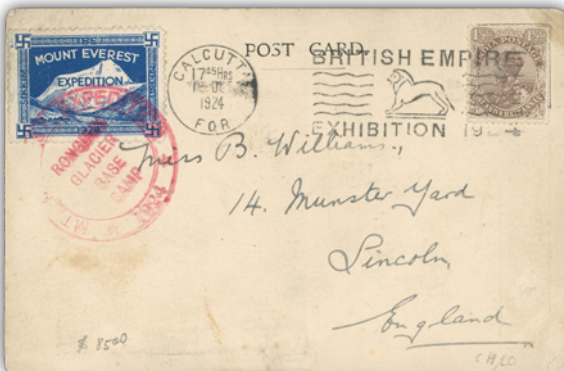 MOUNT EVEREST
EXPEDITION
CALCUTTA
17 45 Hrs
1924
F O R
POST CARD.
BRITISH EMPIRE
EXHIBITION 1924
RONGBUK
GLACIER
BASE
CAMP
MT.
1924
Miss B. Williams,
14. Munster Yard
Lincoln
England
$ 8500